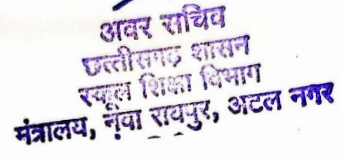 अवर सचिव
छत्तीसगढ़ शासन
स्कूल शिक्षा विभाग
मंत्रालय, नवा रायपुर, अटल नगर